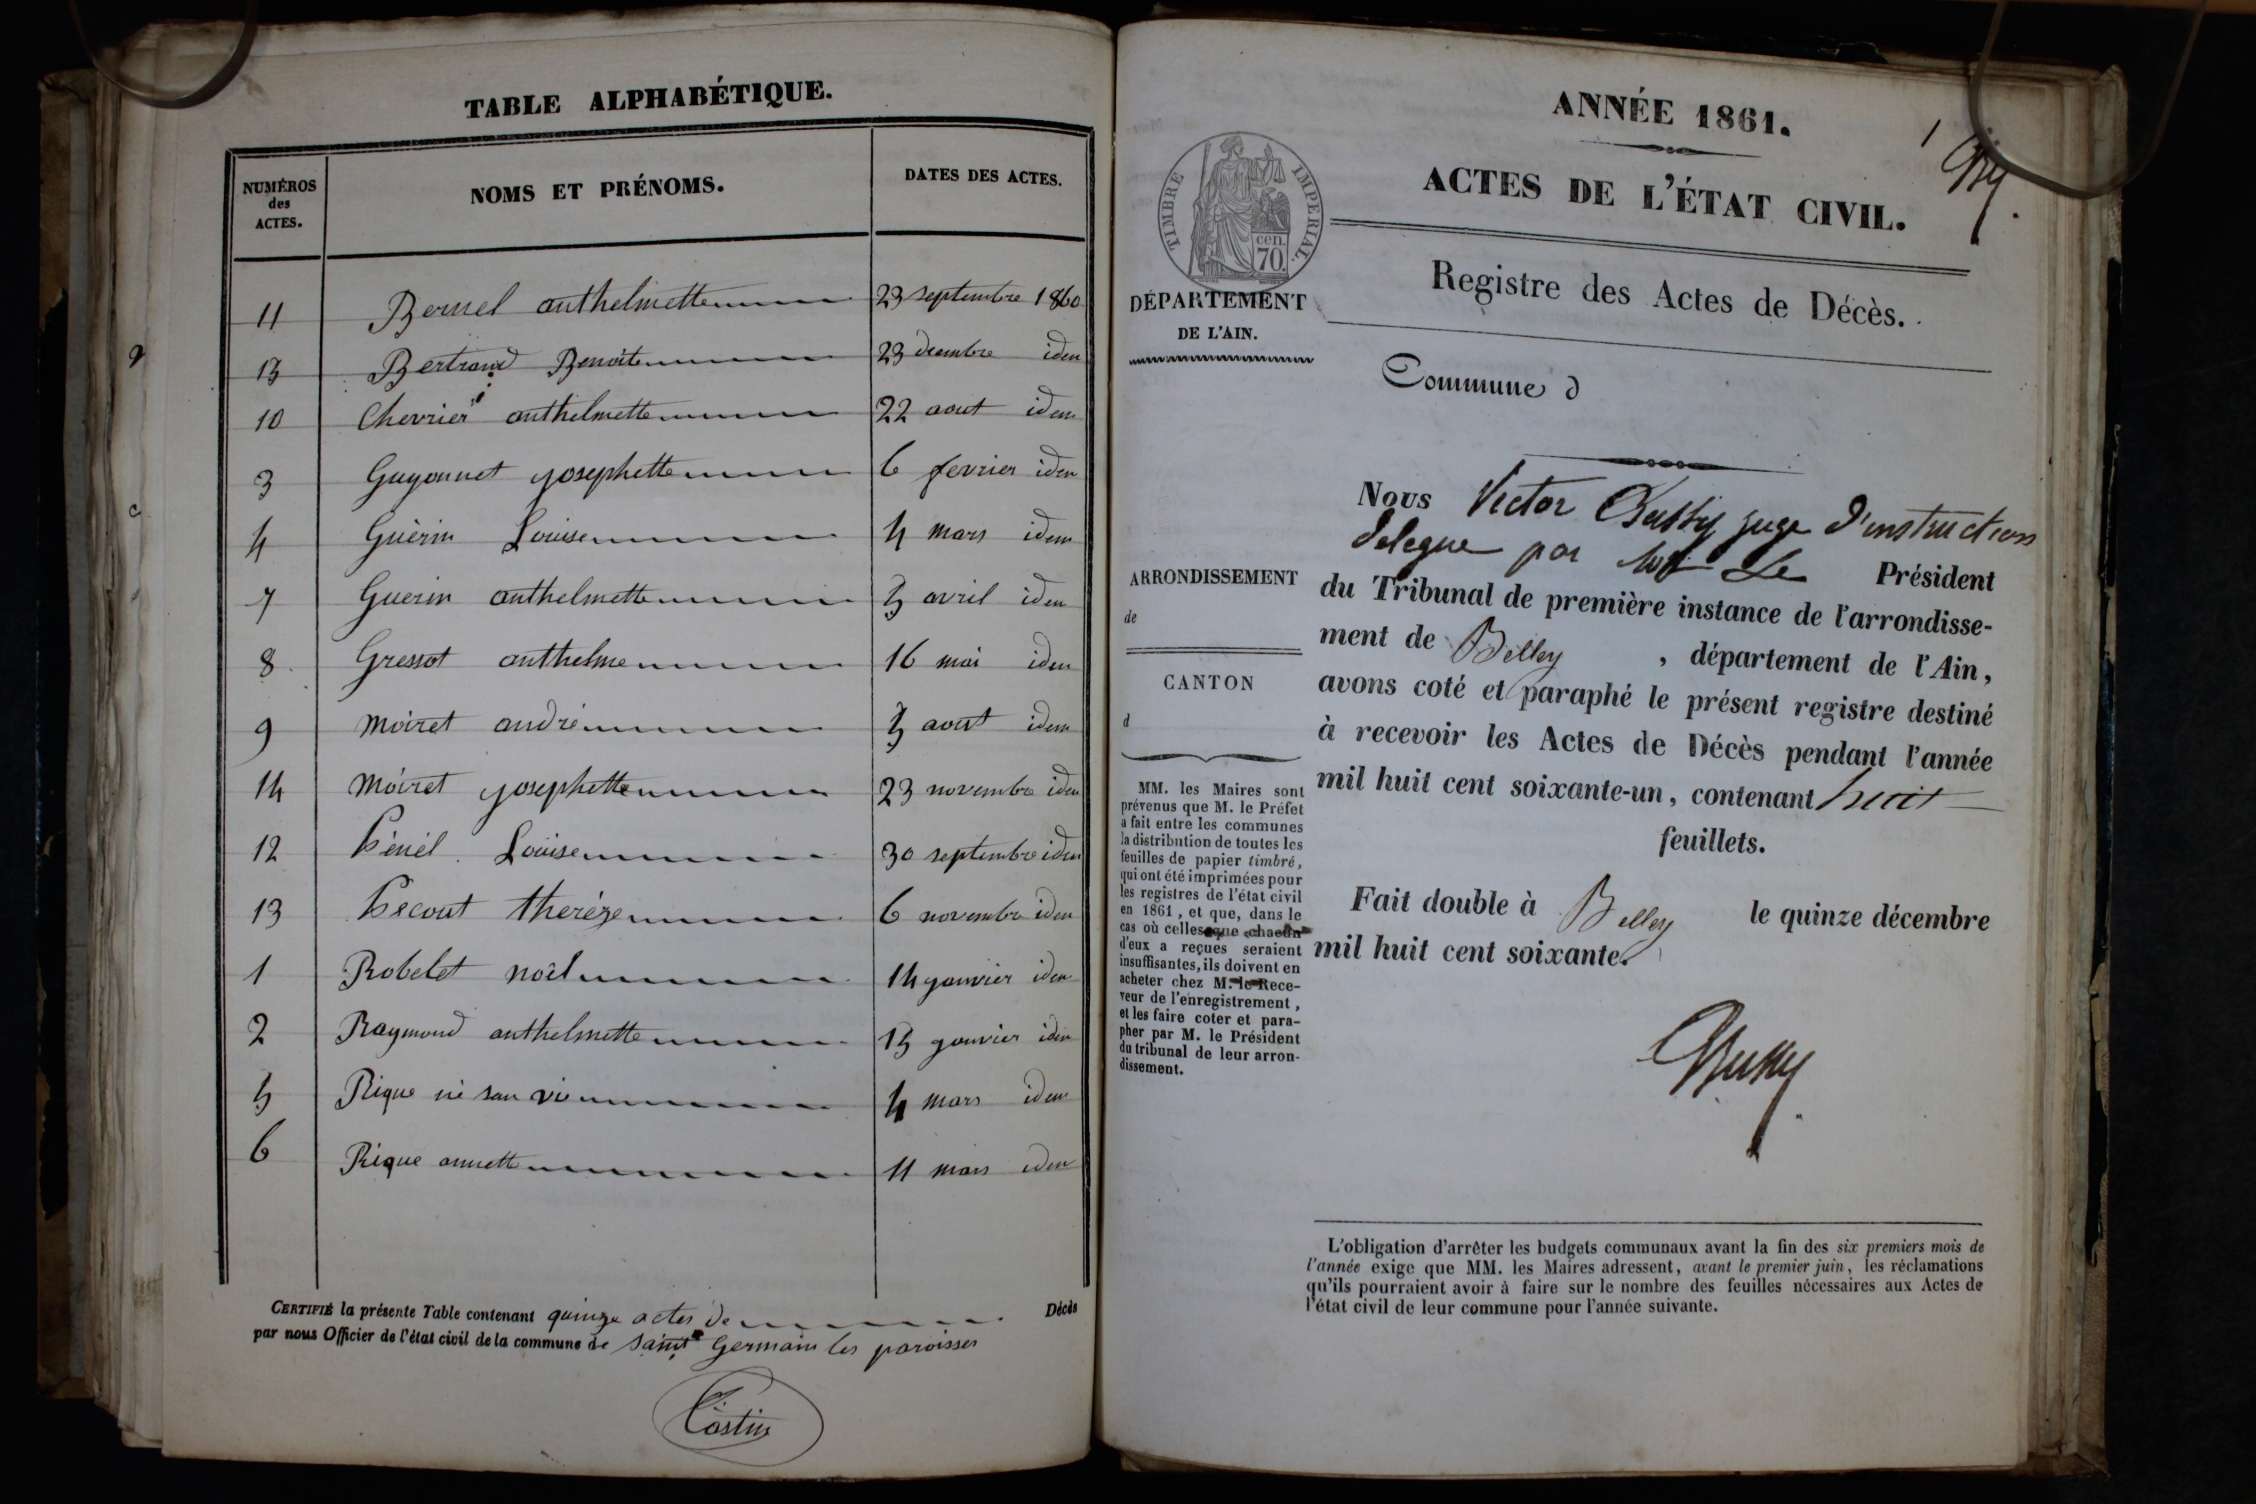 TABLE ALPHABÉTIQUE.
NUMÉROS des ACTES.
NOMS ET PRÉNOMS.
DATES DES ACTES.
11 Bernel anthelmette 23 septembre 1860
15 Bertrand Benoite 23 decembre idem
10 Chevrier anthelmette 22 aout idem
3 Guyonnet josephette 6 fevrier idem
4 Guérin Louise 4 mars idem
7 Guerin anthelmette 5 avril idem
8 Gressot anthelme 16 mai idem
9 Moiret andré 5 aout idem
14 Moiret josephette 23 novembre idem
12 Louise 30 septembre idem
13 therèze 6 novembre idem
1 Robelet noël 14 janvier idem
2 Raymond anthelmette 15 janvier idem
5 Rique né san vie 4 mars idem
6 Rique annette 11 mars idem
CERTIFIÉ la présente Table contenant quinze actes de Décès
par nous Officier de l'état civil de la commune de saint Germain les paroisses
ANNÉE 1861.
1
ACTES DE L'ÉTAT CIVIL.
TIMBRE IMPERIAL.
cen.
70.
Registre des Actes de Décès.
DÉPARTEMENT
DE L'AIN.
Commune d
Nous Victor juge d'instruction
delegue par Mr Le Président
du Tribunal de première instance de l'arrondisse-
ment de Belley , département de l'Ain,
avons coté et paraphé le présent registre destiné
à recevoir les Actes de Décès pendant l'année
mil huit cent soixante-un, contenant huit
feuillets.
Fait double à Belley le quinze décembre
mil huit cent soixante.
ARRONDISSEMENT
de
CANTON
d
MM. les Maires sont
prévenus que M. le Préfet
a fait entre les communes
la distribution de toutes les
feuilles de papier timbré,
qui ont été imprimées pour
les registres de l'état civil
en 1861, et que, dans le
cas où celles que chacun
d'eux a reçues seraient
insuffisantes, ils doivent en
acheter chez M. le Rece-
veur de l'enregistrement,
et les faire coter et para-
pher par M. le Président
du tribunal de leur arron-
dissement.
L'obligation d'arrêter les budgets communaux avant la fin des six premiers mois de
l'année exige que MM. les Maires adressent, avant le premier juin, les réclamations
qu'ils pourraient avoir à faire sur le nombre des feuilles nécessaires aux Actes de
l'état civil de leur commune pour l'année suivante.